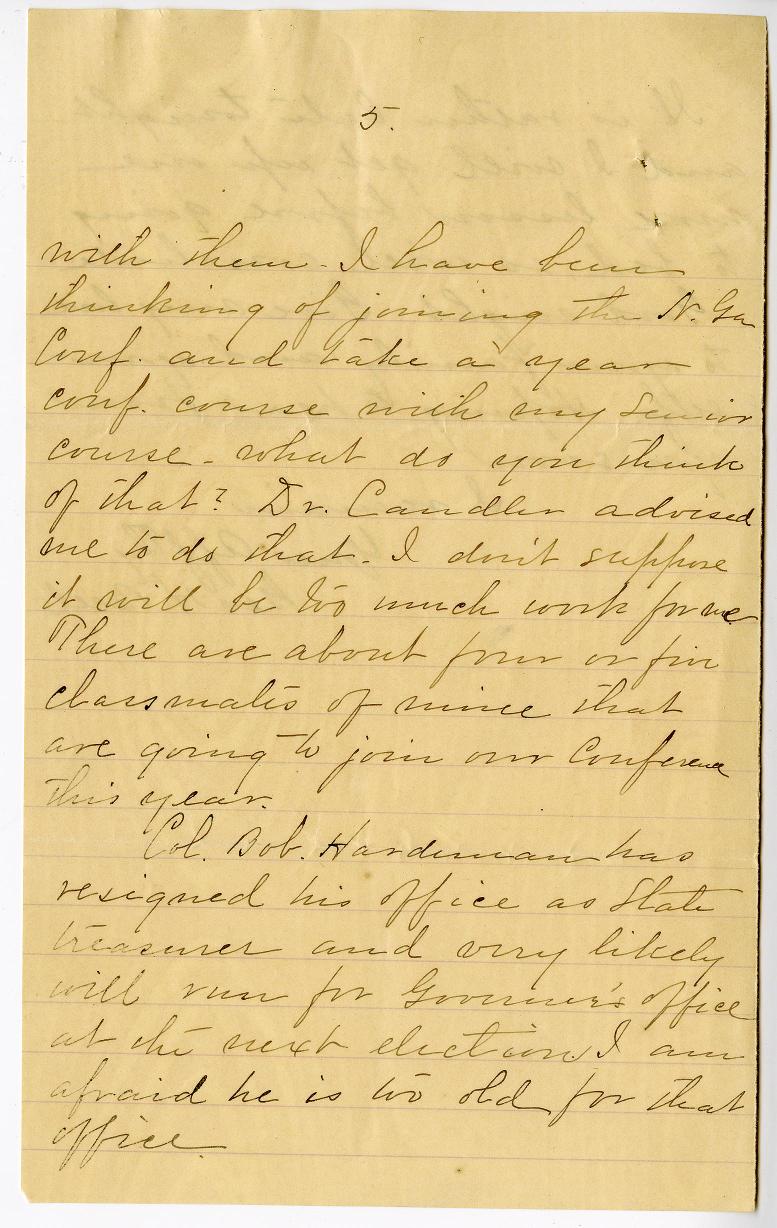 5.
with them. I have been
thinking of joining the N. Ga
Conf. and take a year
conf. course with my senior
course. what do you think
of that? Dr. Candler advised
me to do that. I don't suppose
it will be too much work for me
There are about four or five
classmates of mine that
are going to join our Conference
this year.
Col. Bob. Hardeman has
resigned his office as State
treasurer and very likely
will run for Governor's office
at the next election I am
afraid he is too old for that
office.